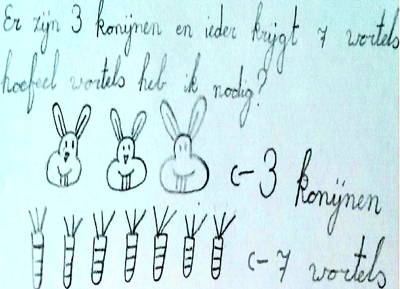 Er zijn 3 konijnen en ieder krijgt 7 wortels
hoefeel wortels heb ik nodig?
<-3 konijnen
<-7 wortels